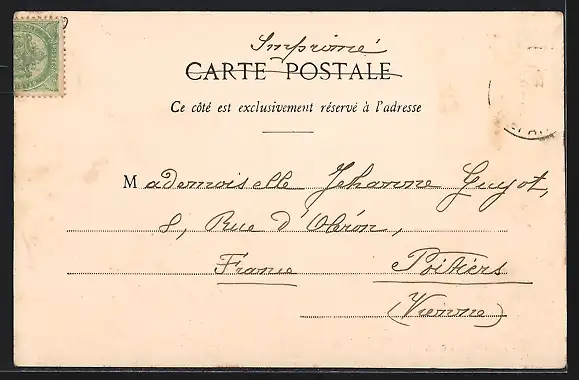 Imprimé
CARTE POSTALE
Ce côté est exclusivement réservé à l'adresse
Mademoiselle Jehanne Guyot,
8, Rue d'Oléron,
France Poitiers
(Vienne)